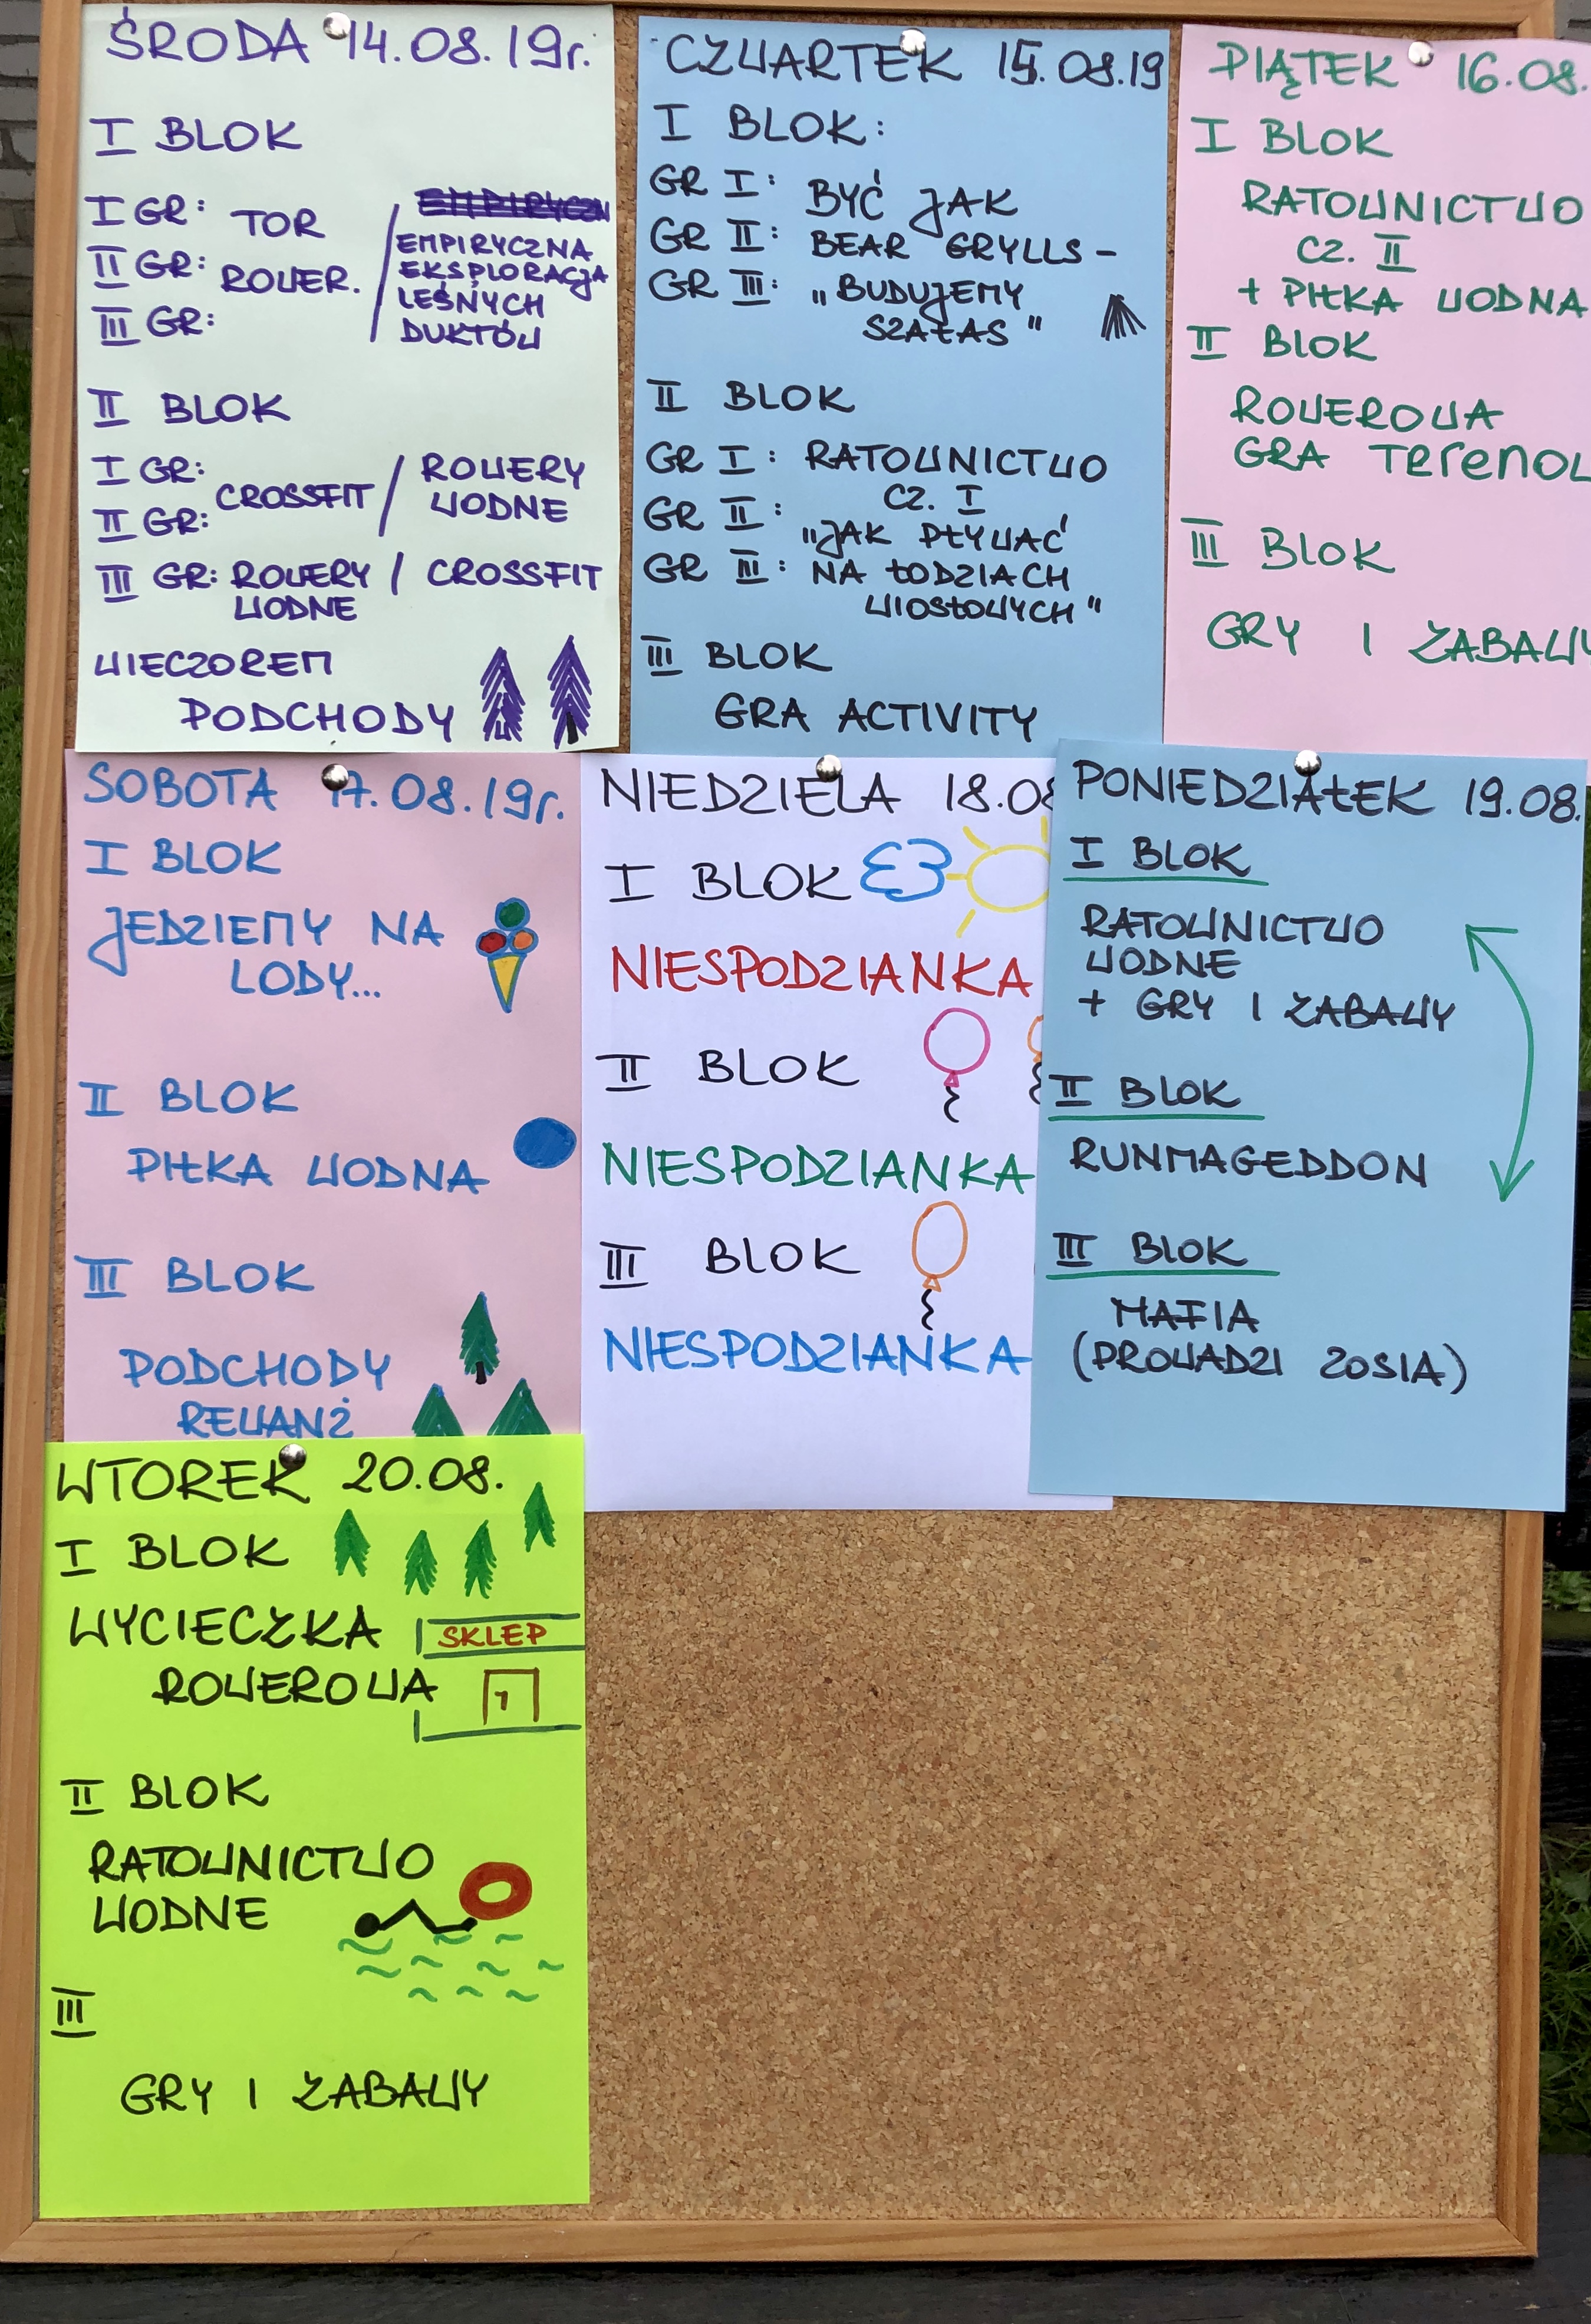 ŚRODA 14.08.19r.
I BLOK
I GR: TOR
II GR: ROWER. /
III GR:
EMPIRYCZNA
EKSPLORACJA
LEŚNYCH
DUKTÓW
II BLOK
I GR: CROSSFIT / ROWERY
II GR: WODNE
III GR: ROWERY / CROSSFIT
WODNE
WIECZOREM
PODCHODY
CZWARTEK 15.08.19
I BLOK:
GR I: BYĆ JAK
GR II: BEAR GRYLLS -
GR III: „BUDUJEMY
SZAŁAS"
II BLOK
GR I: RATOWNICTWO
CZ. I
GR II: „JAK PŁYWAĆ
GR III: NA ŁODZIACH
WIOSŁOWYCH"
III BLOK
GRA ACTIVITY
PIĄTEK 16.08.
I BLOK
RATOWNICTWO
CZ. II
+ PIŁKA WODNA
II BLOK
ROWEROWA
GRA TereNO
III BLOK
GRY I ZABAW
SOBOTA 17.08.19r.
I BLOK
JEDZIEMY NA
LODY...
II BLOK
PIŁKA WODNA
III BLOK
PODCHODY
REWANŻ
NIEDZIELA 18.08
I BLOK
NIESPODZIANKA
II BLOK
NIESPODZIANKA
III BLOK
NIESPODZIANKA
PONIEDZIAŁEK 19.08.
I BLOK
RATOWNICTWO
WODNE
+ GRY I ZABAWY
II BLOK
RUNMAGEDDON
III BLOK
MAFIA
(PROWADZI ZOSIA)
WTOREK 20.08.
I BLOK
WYCIECZKA
SKLEP
ROWEROWA
II BLOK
RATOWNICTWO
WODNE
III
GRY I ZABAWY